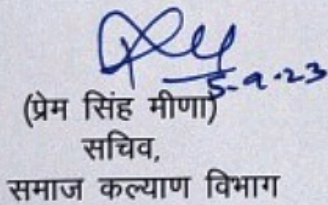 5-9-23
(प्रेम सिंह मीणा)
सचिव,
समाज कल्याण विभाग